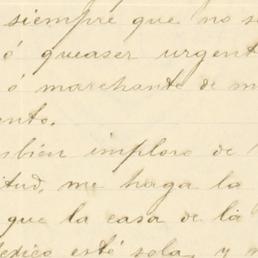 siempre que no s
ó queaser urgent
ó marchante de m
ento.
mbién imploro de
itud, me haga la
que la casa de la
México está sola, y